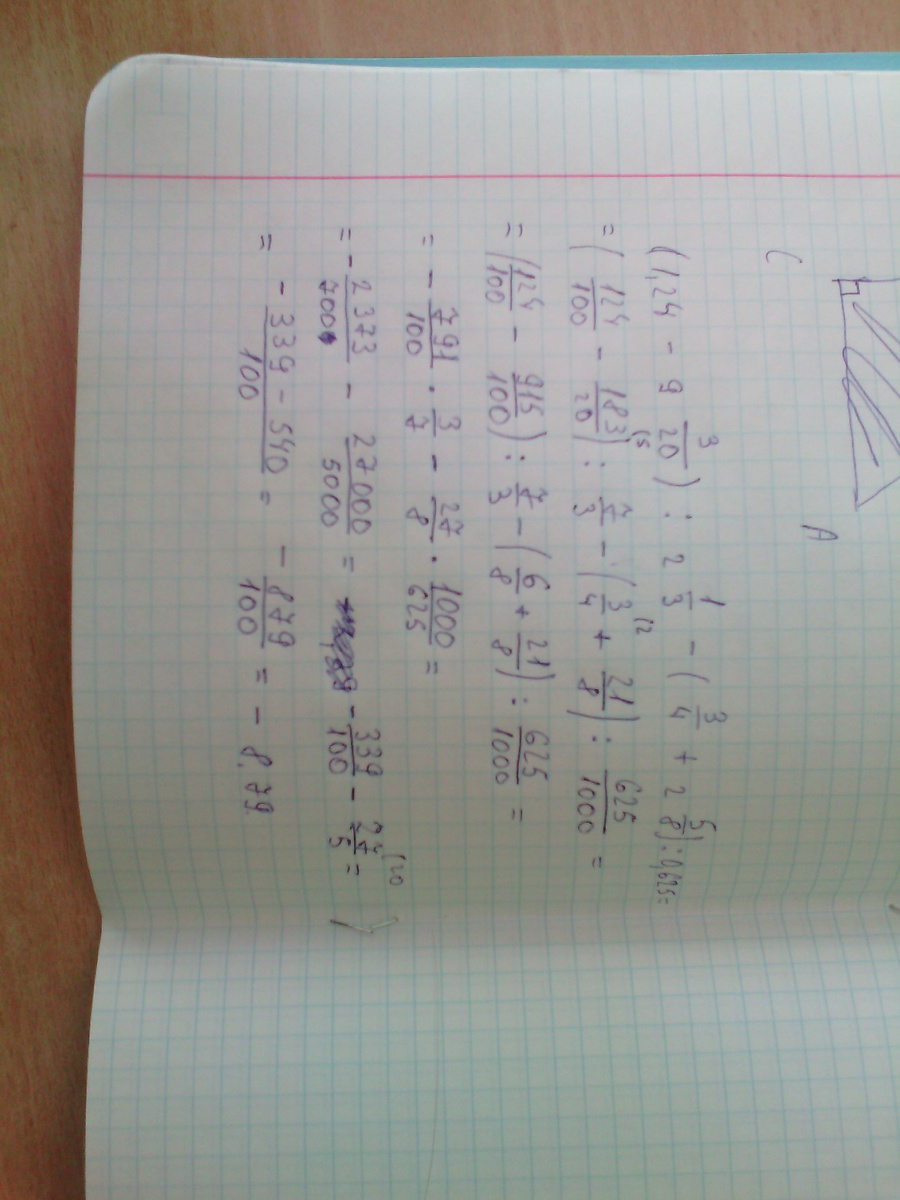 C A
(1,24 - 9 3/20) : 2 1/3 - (3/4 + 2 5/8) : 0,625=
= (124/100 - 183/20 (5) : 7/3 - (3/4 (2 + 21/8) : 625/1000 =
= (124/100 - 915/100) : 7/3 - (6/8 + 21/8) : 625/1000 =
= - 791/100 · 3/7 - 27/8 · 1000/625 =
= - 2373/700 - 27000/5000 = - 339/100 - 27/5 (20 =
= - 339 - 540/100 = - 879/100 = - 8,79